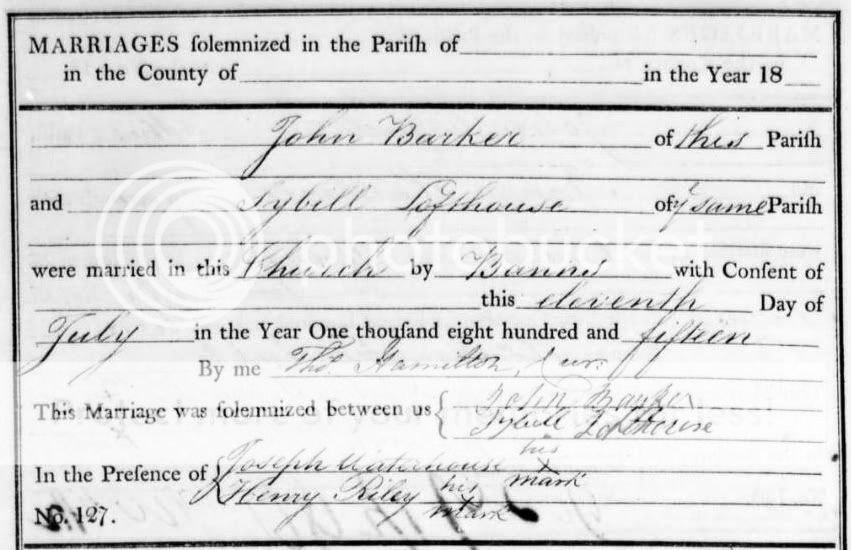 MARRIAGES ſolemnized in the Pariſh of
in the County of in the Year 18
John Barker of this Pariſh
and Sybill Lofthouse of yᵉ same Pariſh
were married in this Church by Banns with Conſent of
this eleventh Day of
July in the Year One thouſand eight hundred and fifteen
By me Thoˢ Hamilton, Cur:
This Marriage was ſolemnized between us { John Barker
Sybell Lofthouse
In the Preſence of { Joseph Waterhouse his mark
Henry Riley his mark
No. 127.
photobucket